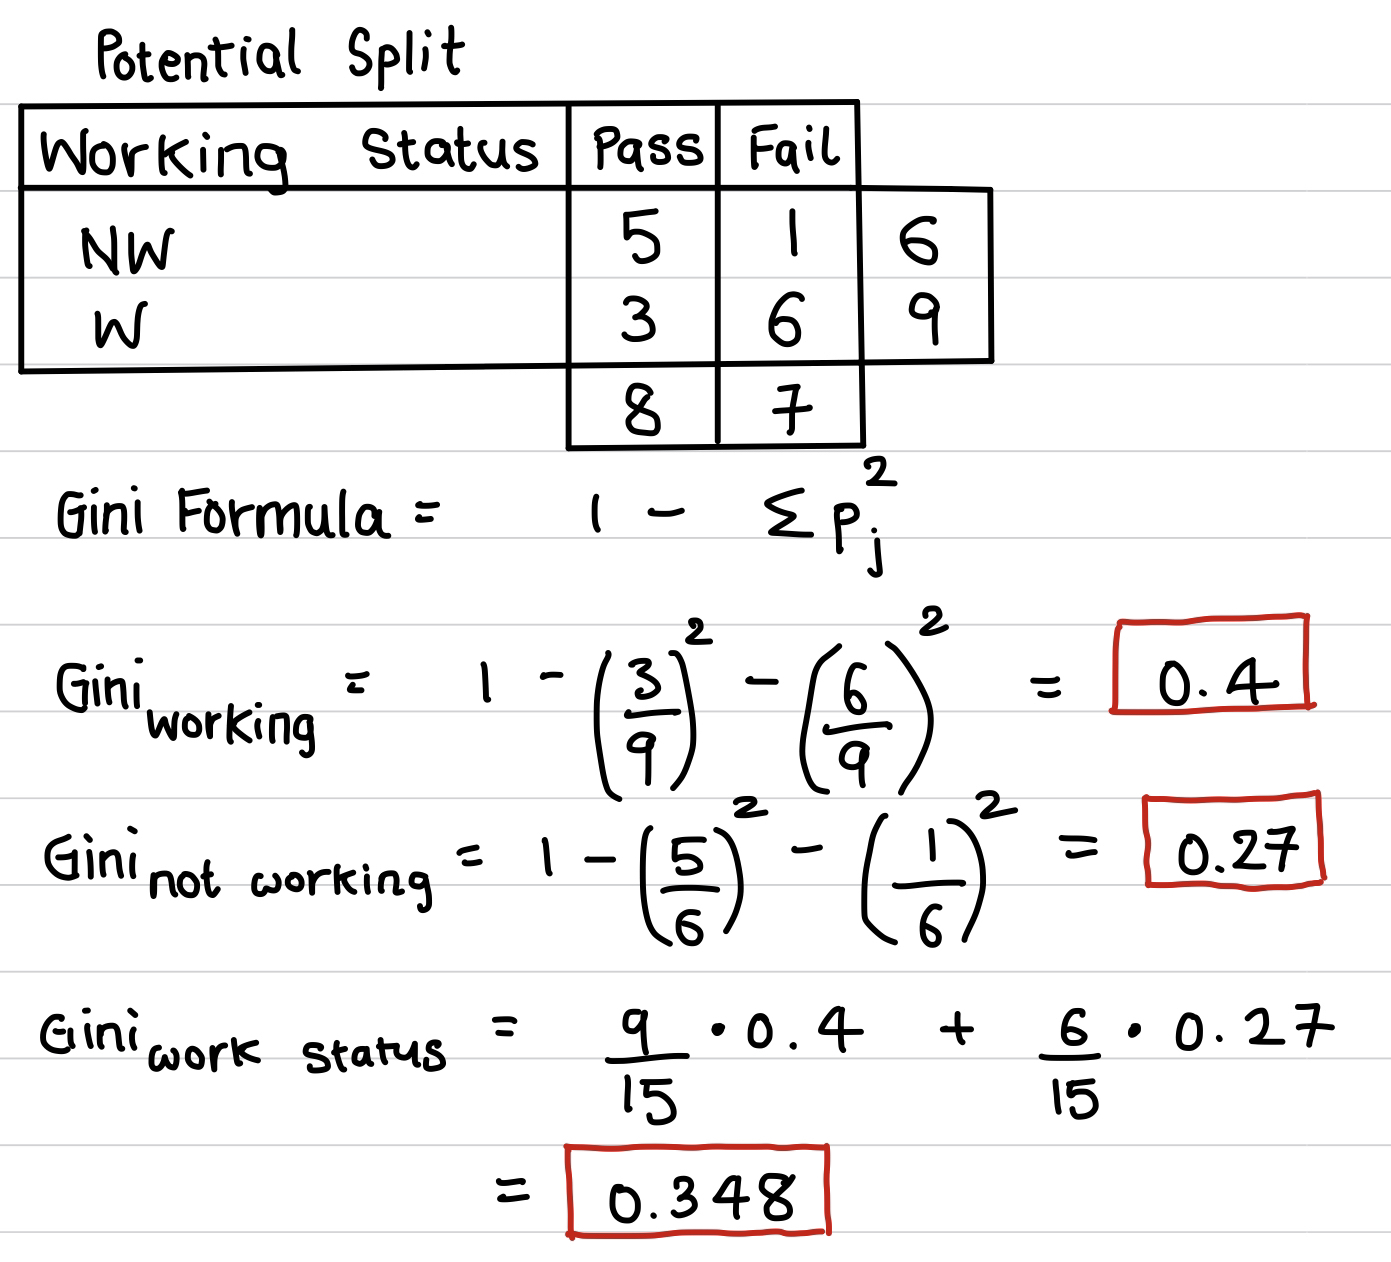 Potential Split
Working Status Pass Fail
NW 5 1 6
W 3 6 9
8 7
Gini Formula = 1 - Σ p_j^2
Gini working = 1 - (3/9)^2 - (6/9)^2 = 0.4
Gini not working = 1 - (5/6)^2 - (1/6)^2 = 0.27
Gini work status = 9/15 · 0.4 + 6/15 · 0.27
= 0.348